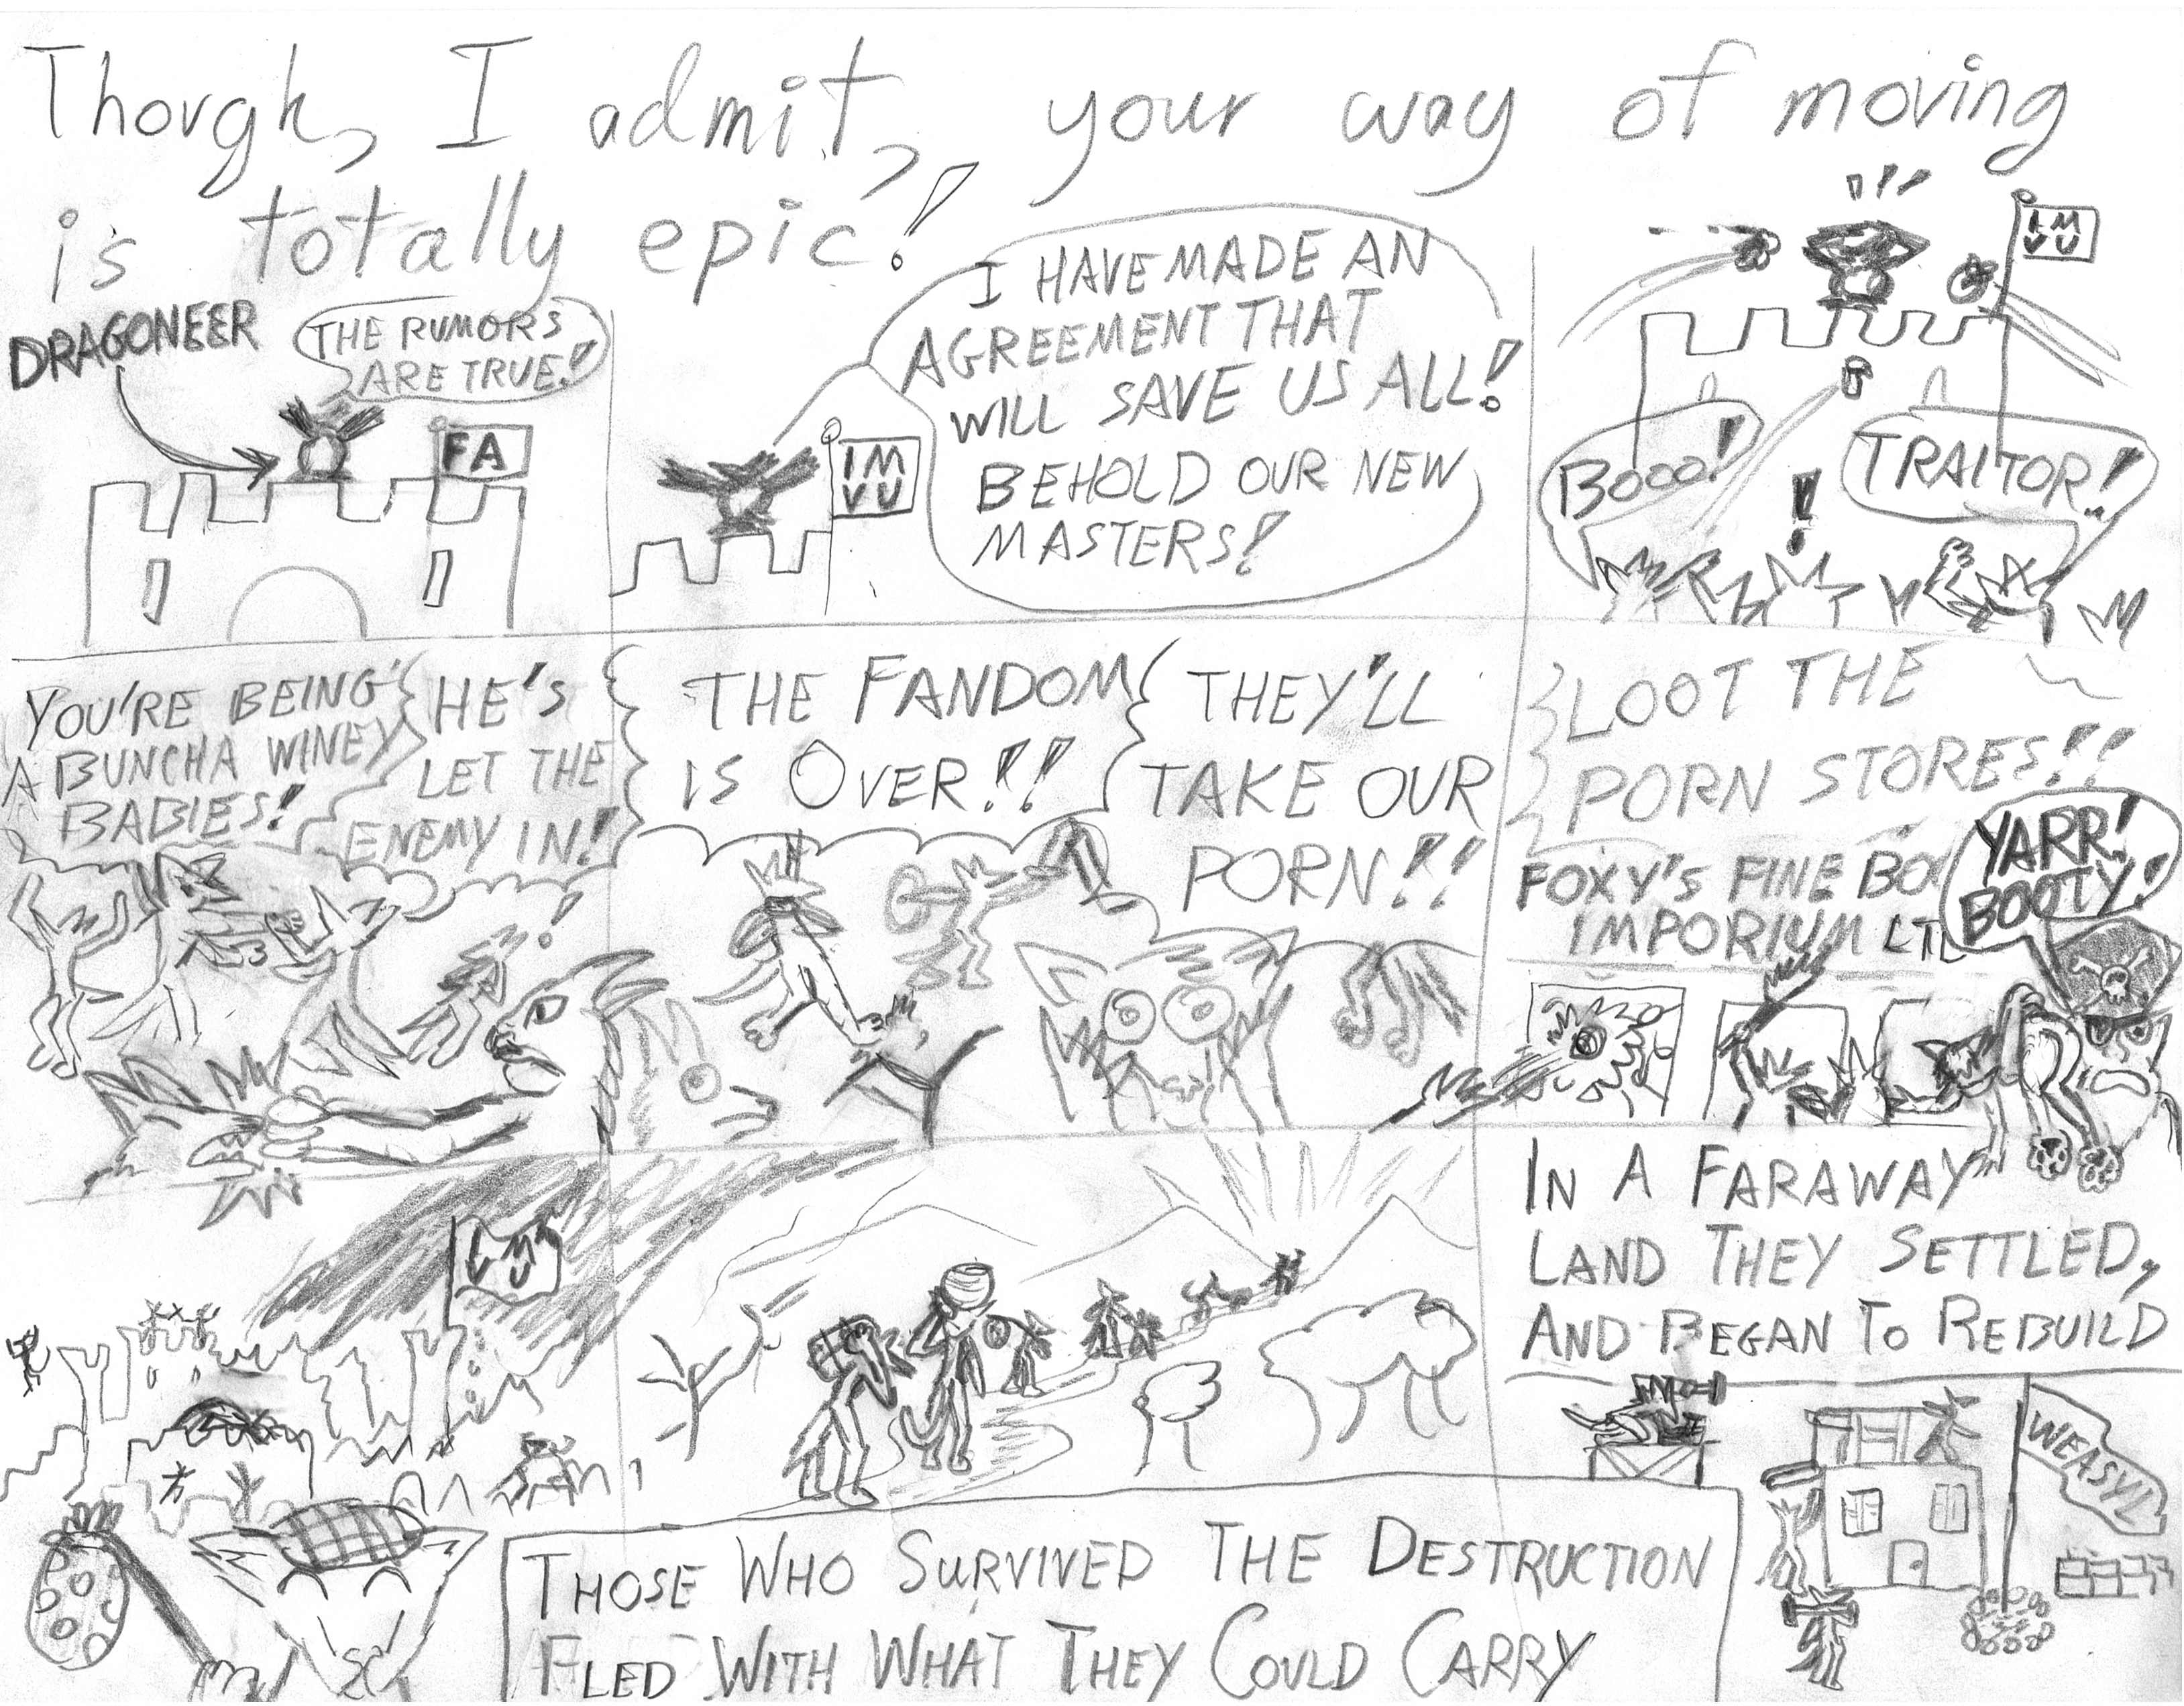 Though, I admit, your way of moving
is totally epic!
DRAGONEER
THE RUMORS
ARE TRUE!
FA
I HAVE MADE AN
AGREEMENT THAT
WILL SAVE US ALL!
BEHOLD OUR NEW
MASTERS!
IM
VU
IM
VU
BOOO!
TRAITOR!!
!
YOU'RE BEING
A BUNCHA WINEY
BABIES!
HE'S
LET THE
ENEMY IN!
!
THE FANDOM
IS OVER!!
THEY'LL
TAKE OUR
PORN!!
LOOT THE
PORN STORES!!
FOXY'S FINE BO
IMPORIUM LT
YARR!
BOOTY!
IM
VU
THOSE WHO SURVIVED THE DESTRUCTION
FLED WITH WHAT THEY COULD CARRY
IN A FARAWAY
LAND THEY SETTLED,
AND BEGAN TO REBUILD
WEASYL